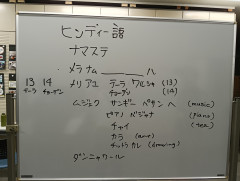 ヒンディー語
ナマステ
メラ ナム ______ ハ
13 14 メリ アユ テーラ ワルシャ (13)
テーラ チョーダ チョーダ (14)
ムジェク サンギー ペサン ヘ (music)
ピアノ バジャナ (piano)
チャイ (tea)
カラ (art)
(drawing)
ダンニャワール